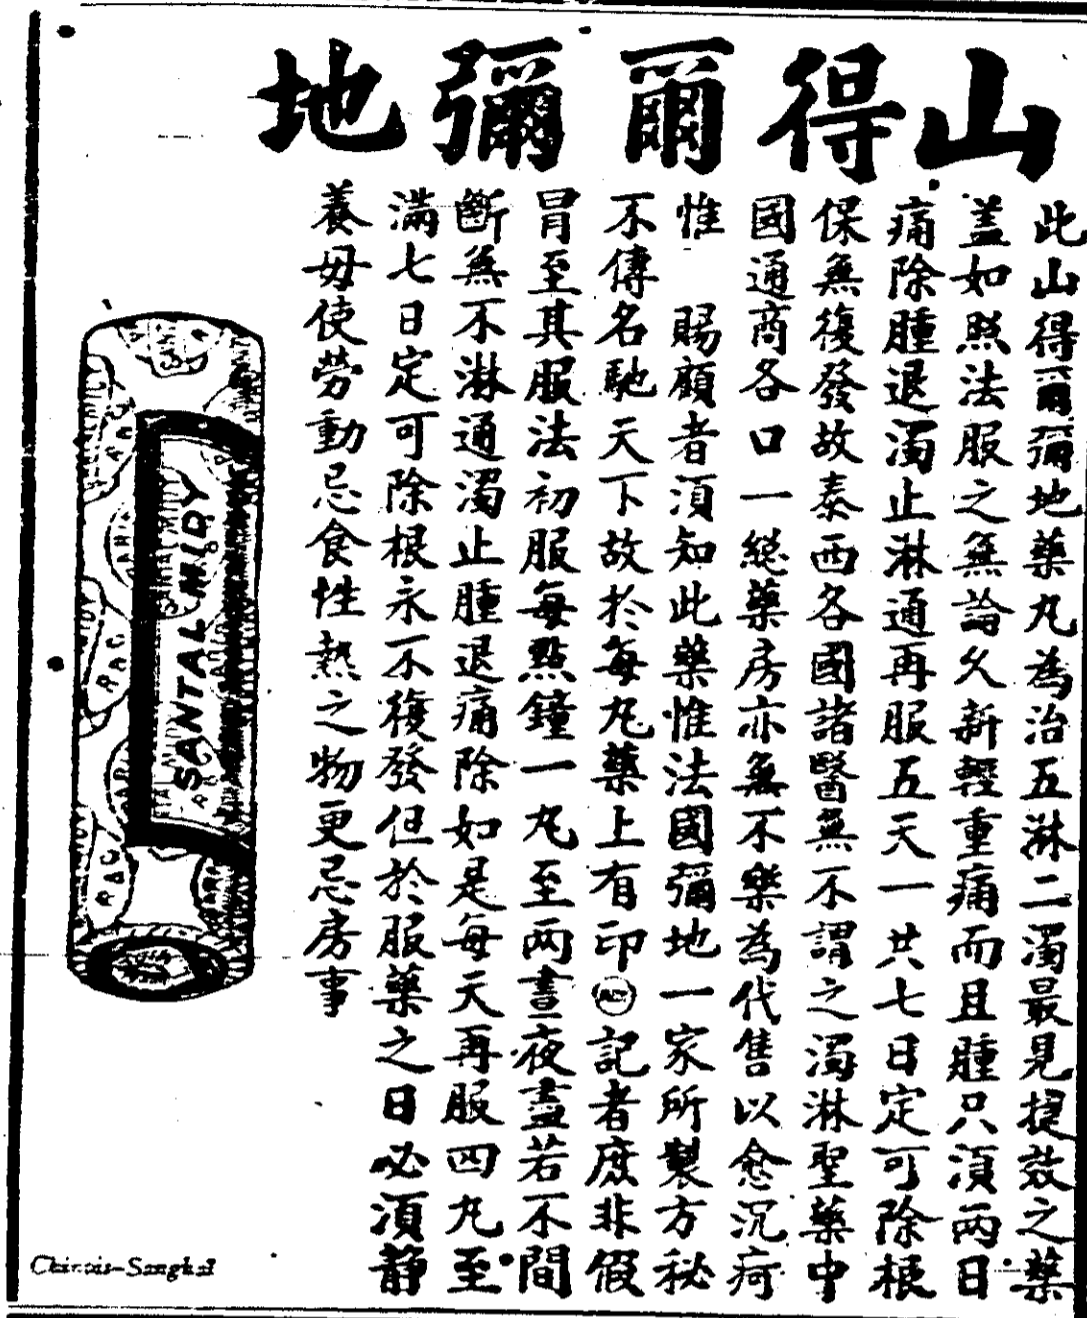 山得爾彌地
此山得爾彌地藥丸為治五淋二濁最見捷效之藥
蓋如照法服之無論久新輕重痛而且腫只須兩日
痛除腫退濁止淋通再服五天一共七日定可除根
保無復發故泰西各國諸醫無不謂之濁淋聖藥中
國通商各口一總藥房亦無不樂為代售以愈沉疴
惟 賜顧者須知此藥惟法國彌地一家所製方秘
不傳名馳天下故於每丸藥上有印記者庶非假
冒至其服法初服每點鐘一丸至兩晝夜盡若不間
斷無不淋通濁止腫退痛除如是每天再服四丸至
滿七日定可除根永不復發但於服藥之日必須静
養毋使勞動忌食性熱之物更忌房事
SANTAL MIDY
Chinois-Sanghaï